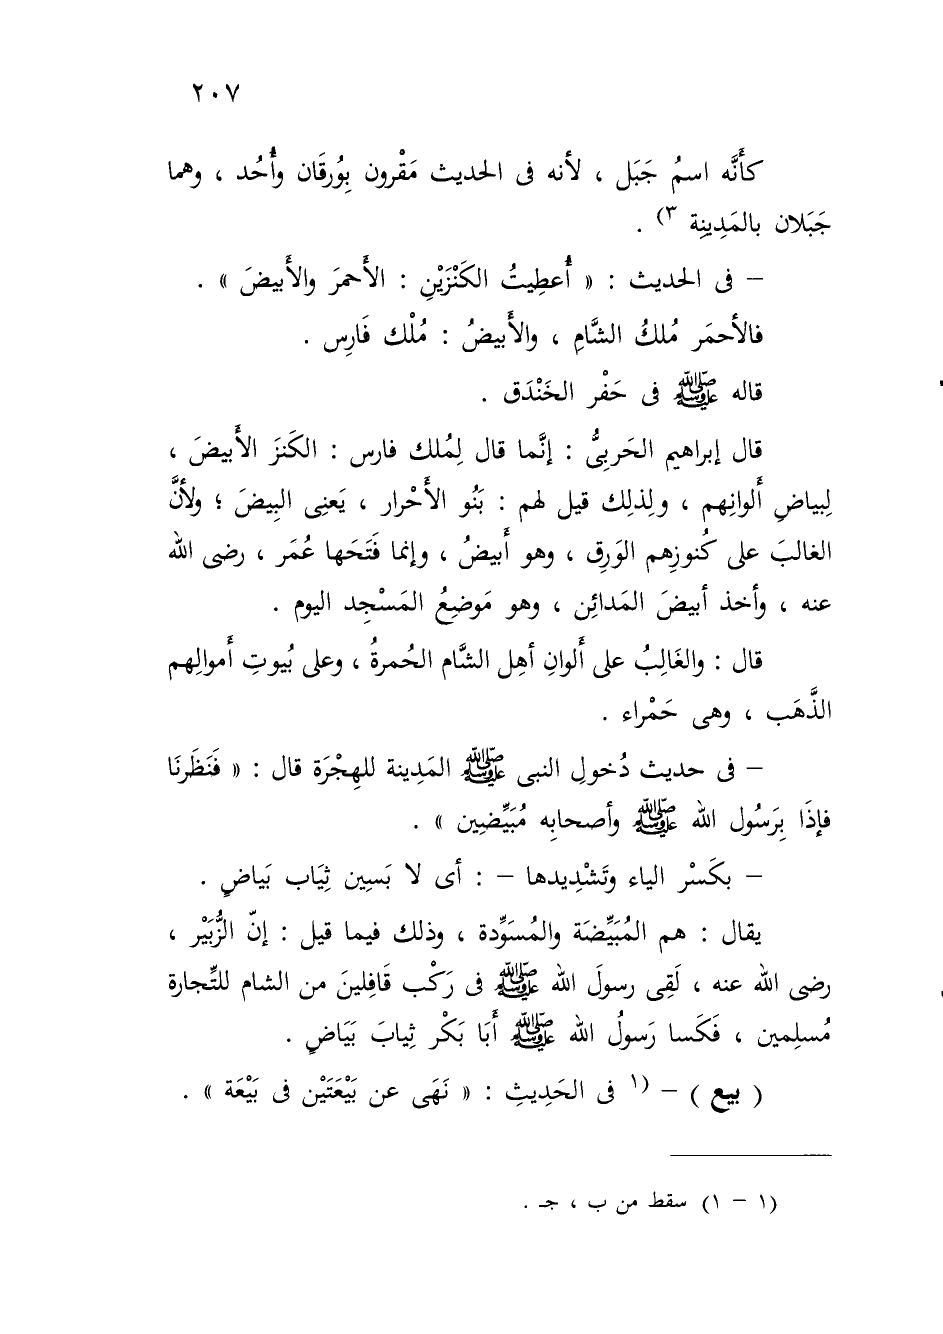 ٢٠٧
كأَنَّه اسمُ جَبَل ، لأنه فى الحديث مَقْرون بِوُرقَان وأُحُد ، وهما
جَبَلان بالمَدِينِة ٣) .
– فى الحديث : « أُعطِيتُ الكَنْزَيْنِ : الأَحمرَ والأَبيضَ » .
فالأحمَر مُلكُ الشَّامِ ، والأَبيضُ : مُلْك فَارِس .
قاله ﷺ فى حَفْر الخَنْدَق .
قال إبراهيم الحَربِىُّ : إنَّما قال لِمُلك فارس : الكَنزَ الأَبيضَ ،
لِبياضِ أَلوانِهم ، ولِذلِك قيل لهم : بَنُو الأَحْرار ، يَعنِى البِيضَ ؛ ولأنَّ
الغالبَ على كُنوزِهم الوَرِق ، وهو أَبيضُ ، وإنما فَتَحَها عُمَر ، رضى الله
عنه ، وأخذ أبيضَ المَدائِن ، وهو مَوضِعُ المَسْجِد اليوم .
قال : والغَالِبُ على أَلوانِ أهلِ الشَّام الحُمرةُ ، وعلى بُيوتِ أَموالِهم
الذَّهَب ، وهى حَمْراء .
– فى حديث دُخولِ النبى ﷺ المَدِينة للهِجْرَة قال : « فَنَظَرنَا
فإذَا بِرَسُول الله ﷺ وأصحابِه مُبَيِّضِين » .
– بكَسْر الياء وتَشْدِيدها – : أى لا بَسِين ثِيَاب بَياضٍ .
يقال : هم المُبَيِّضَة والمُسَوِّدة ، وذلك فيما قيل : إنّ الزُّبَيْر ،
رضى الله عنه ، لَقِى رسولَ الله ﷺ فى رَكْب قَافِلينَ من الشام للتِّجارة
مُسلِمين ، فَكَسا رَسولُ الله ﷺ أَبَا بَكْر ثِيابَ بَيَاضٍ .
( بيع ) – ١) فى الحَدِيثِ : « نَهَى عن بَيْعَتَيْن فى بَيْعَة » .
(١ – ١) سقط من ب ، جـ .